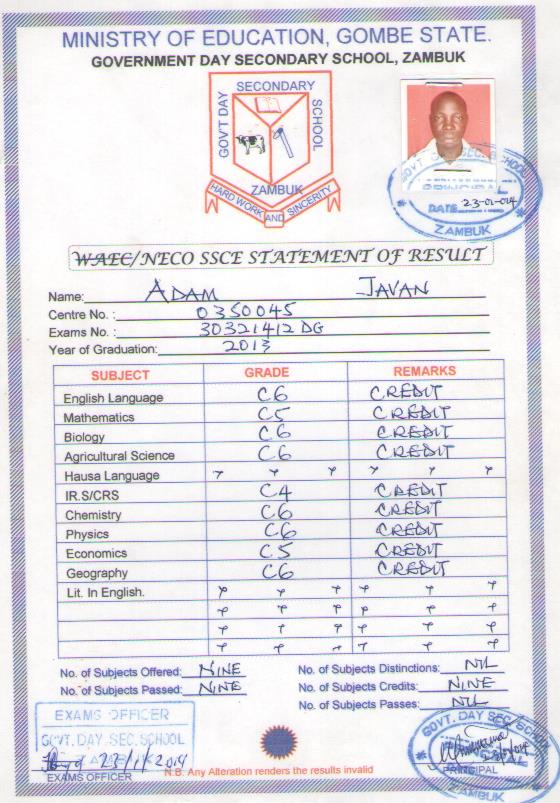 MINISTRY OF EDUCATION, GOMBE STATE.
GOVERNMENT DAY SECONDARY SCHOOL, ZAMBUK
GOV'T DAY SECONDARY SCHOOL
ZAMBUK
HARD WORK AND SINCERITY
GOVT. DAY SEC. SCHOOL
PRINCIPAL
DATE 23-01-014
ZAMBUK
WAEC/NECO SSCE STATEMENT OF RESULT
Name: ADAM JAVAN
Centre No. : 0350045
Exams No. : 30321412 DG
Year of Graduation: 2013
SUBJECT GRADE REMARKS
English Language C6 CREDIT
Mathematics C5 CREDIT
Biology C6 CREDIT
Agricultural Science C6 CREDIT
Hausa Language
IR.S/CRS C4 CREDIT
Chemistry C6 CREDIT
Physics C6 CREDIT
Economics C5 CREDIT
Geography C6 CREDIT
Lit. In English.
No. of Subjects Offered: NINE No. of Subjects Distinctions: NIL
No. of Subjects Passed: NINE No. of Subjects Credits: NINE
No. of Subjects Passes: NIL
EXAMS OFFICER
GOVT. DAY SEC. SCHOOL
23/1/2014
EXAMS OFFICER
N.B. Any Alteration renders the results invalid
GOVT. DAY SEC SCHOOL
PRINCIPAL
ZAMBUK